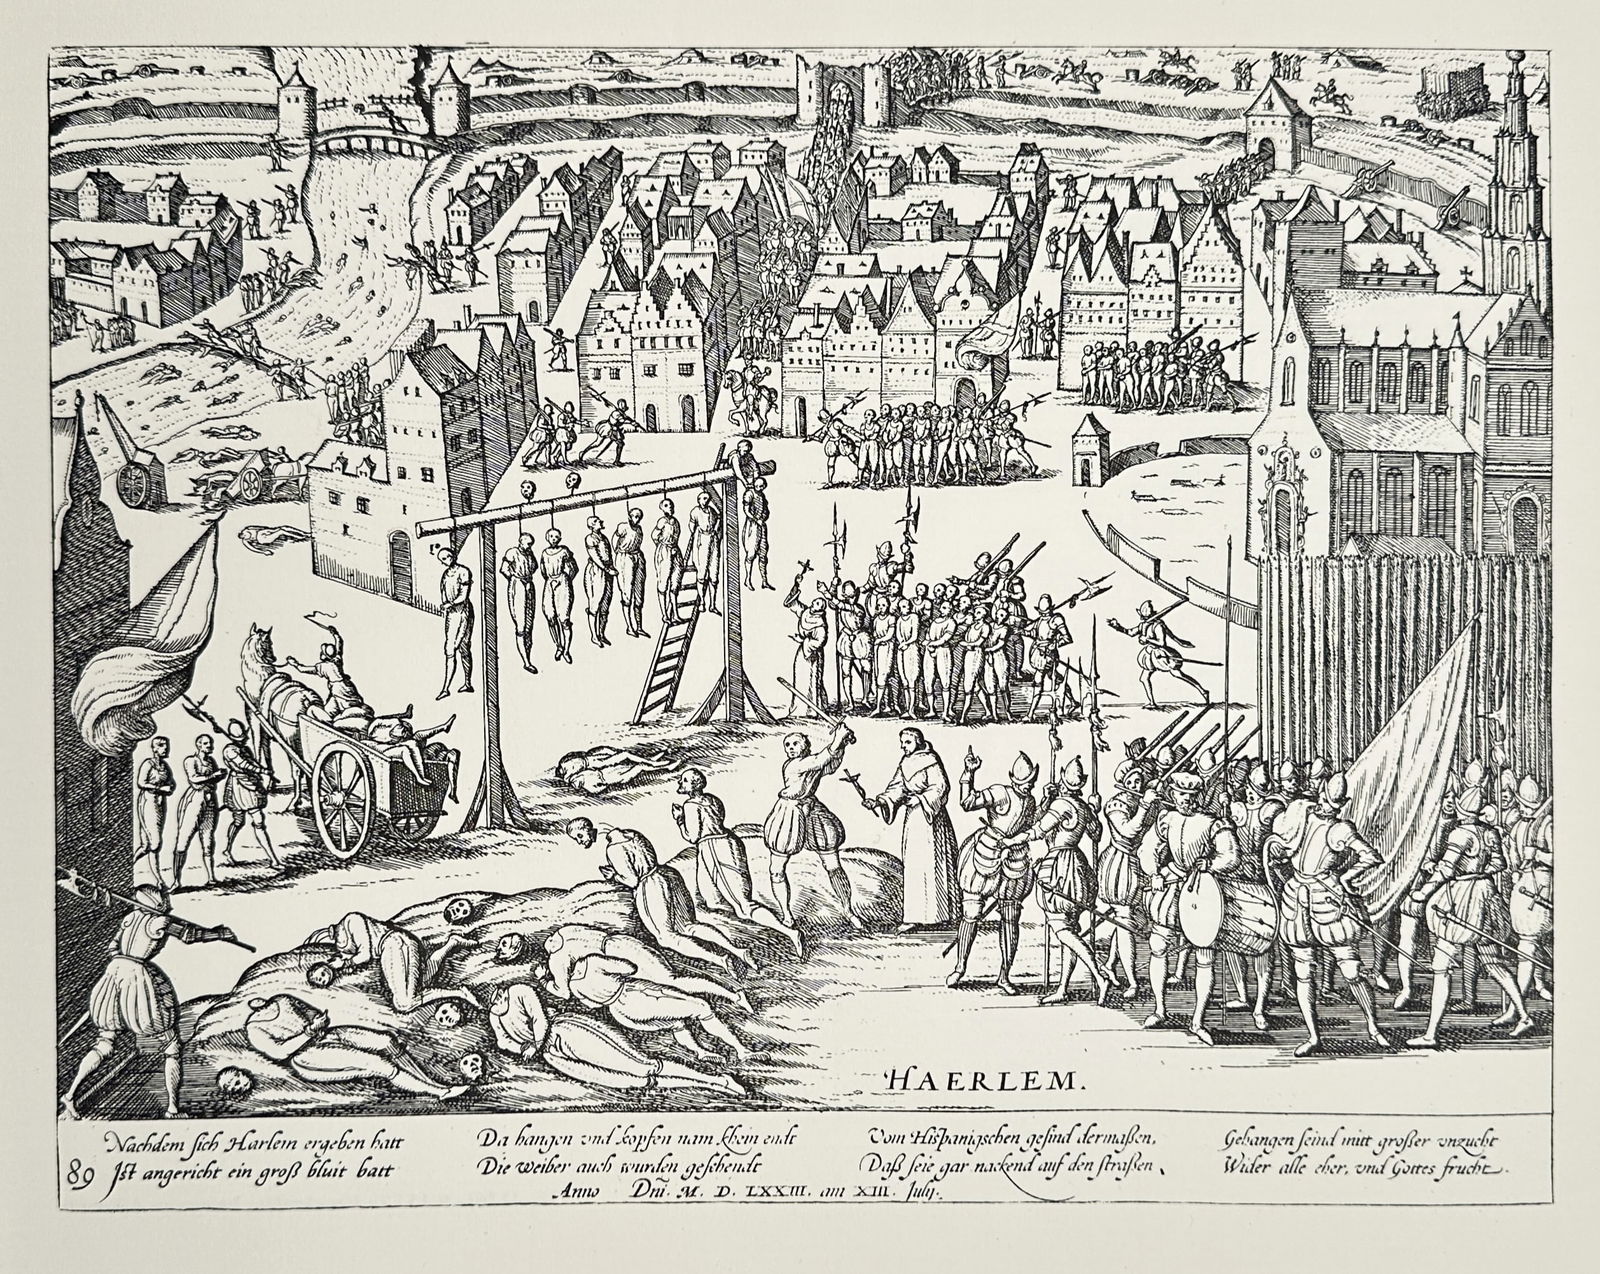 HAERLEM.
Nachdem sich Harlem ergeben hatt
89 Ist angericht ein groß bluit batt
Da hangen vnd kopfen nam khein endt
Die weiber auch wurden geschendt
Vom Hispanigschen gesind dermaßen,
Daß seie gar nackend auf den straßen,
Gehangen seind mitt großer vnzucht
Wider alle eher, vnd Gottes frucht.
Anno Dni. M. D. LXXIII. am XIII. Julij.